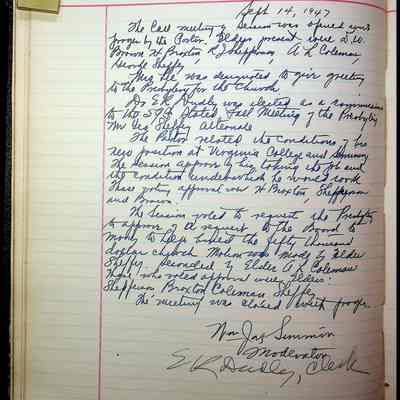 Sept 14, 1947
The Call meeting of Session was opened with
prayer by the Pastor. Elders present were D.W.
Brown, H Broxton, R.J. Shefferson, A L Coleman,
George Sheffey,
was designated to give greeting
to the Presbytery for the Church
Dr E.R. Dudley was elected as a commissioner
to the Stated Fall Meeting of the Presbytery
Mr Geo Sheffey Alternate
The Pastor related the conditions of his
new position at Virginia College and Seminary
The Session approved his taking the job and
the condition under which he would work
Those voting approval were H Broxton, Shefferson
and Brown.
The Session voted to request the Presbytery
to approve of a request to the Board to
Money to help build the fifty thousand
dollar church. Motion was made by Elder
Sheffey, seconded by Elder A L Coleman
Those who voted approval were Elders:
Shefferson Broxton Coleman Sheffey
The meeting was closed with prayer
Wm Jas Simmons
Moderator
E R Dudley, Clerk